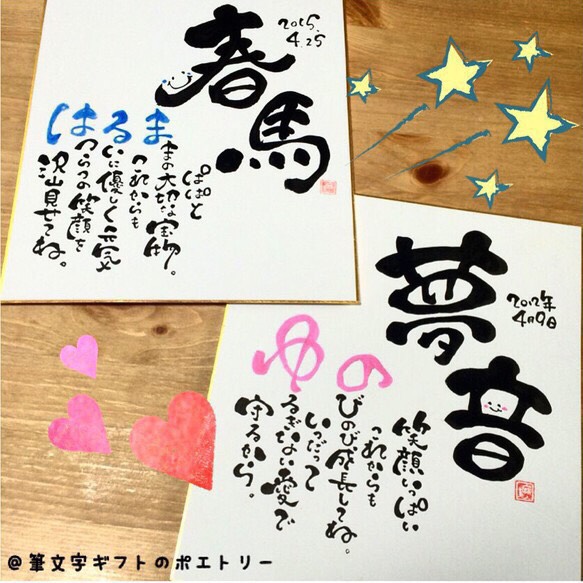 春馬
2015.
4.25
はるま
ぱぱと
まの大切な宝物。
これからも
いに優しく元気
つらつの笑顔を
沢山見せてね。
夢音
2012年
4月9日
ゆの
笑顔いっぱい
これからも
びのび成長してね。
いつだって
るぎない愛で
守るから。
@筆文字ギフトのポエトリー